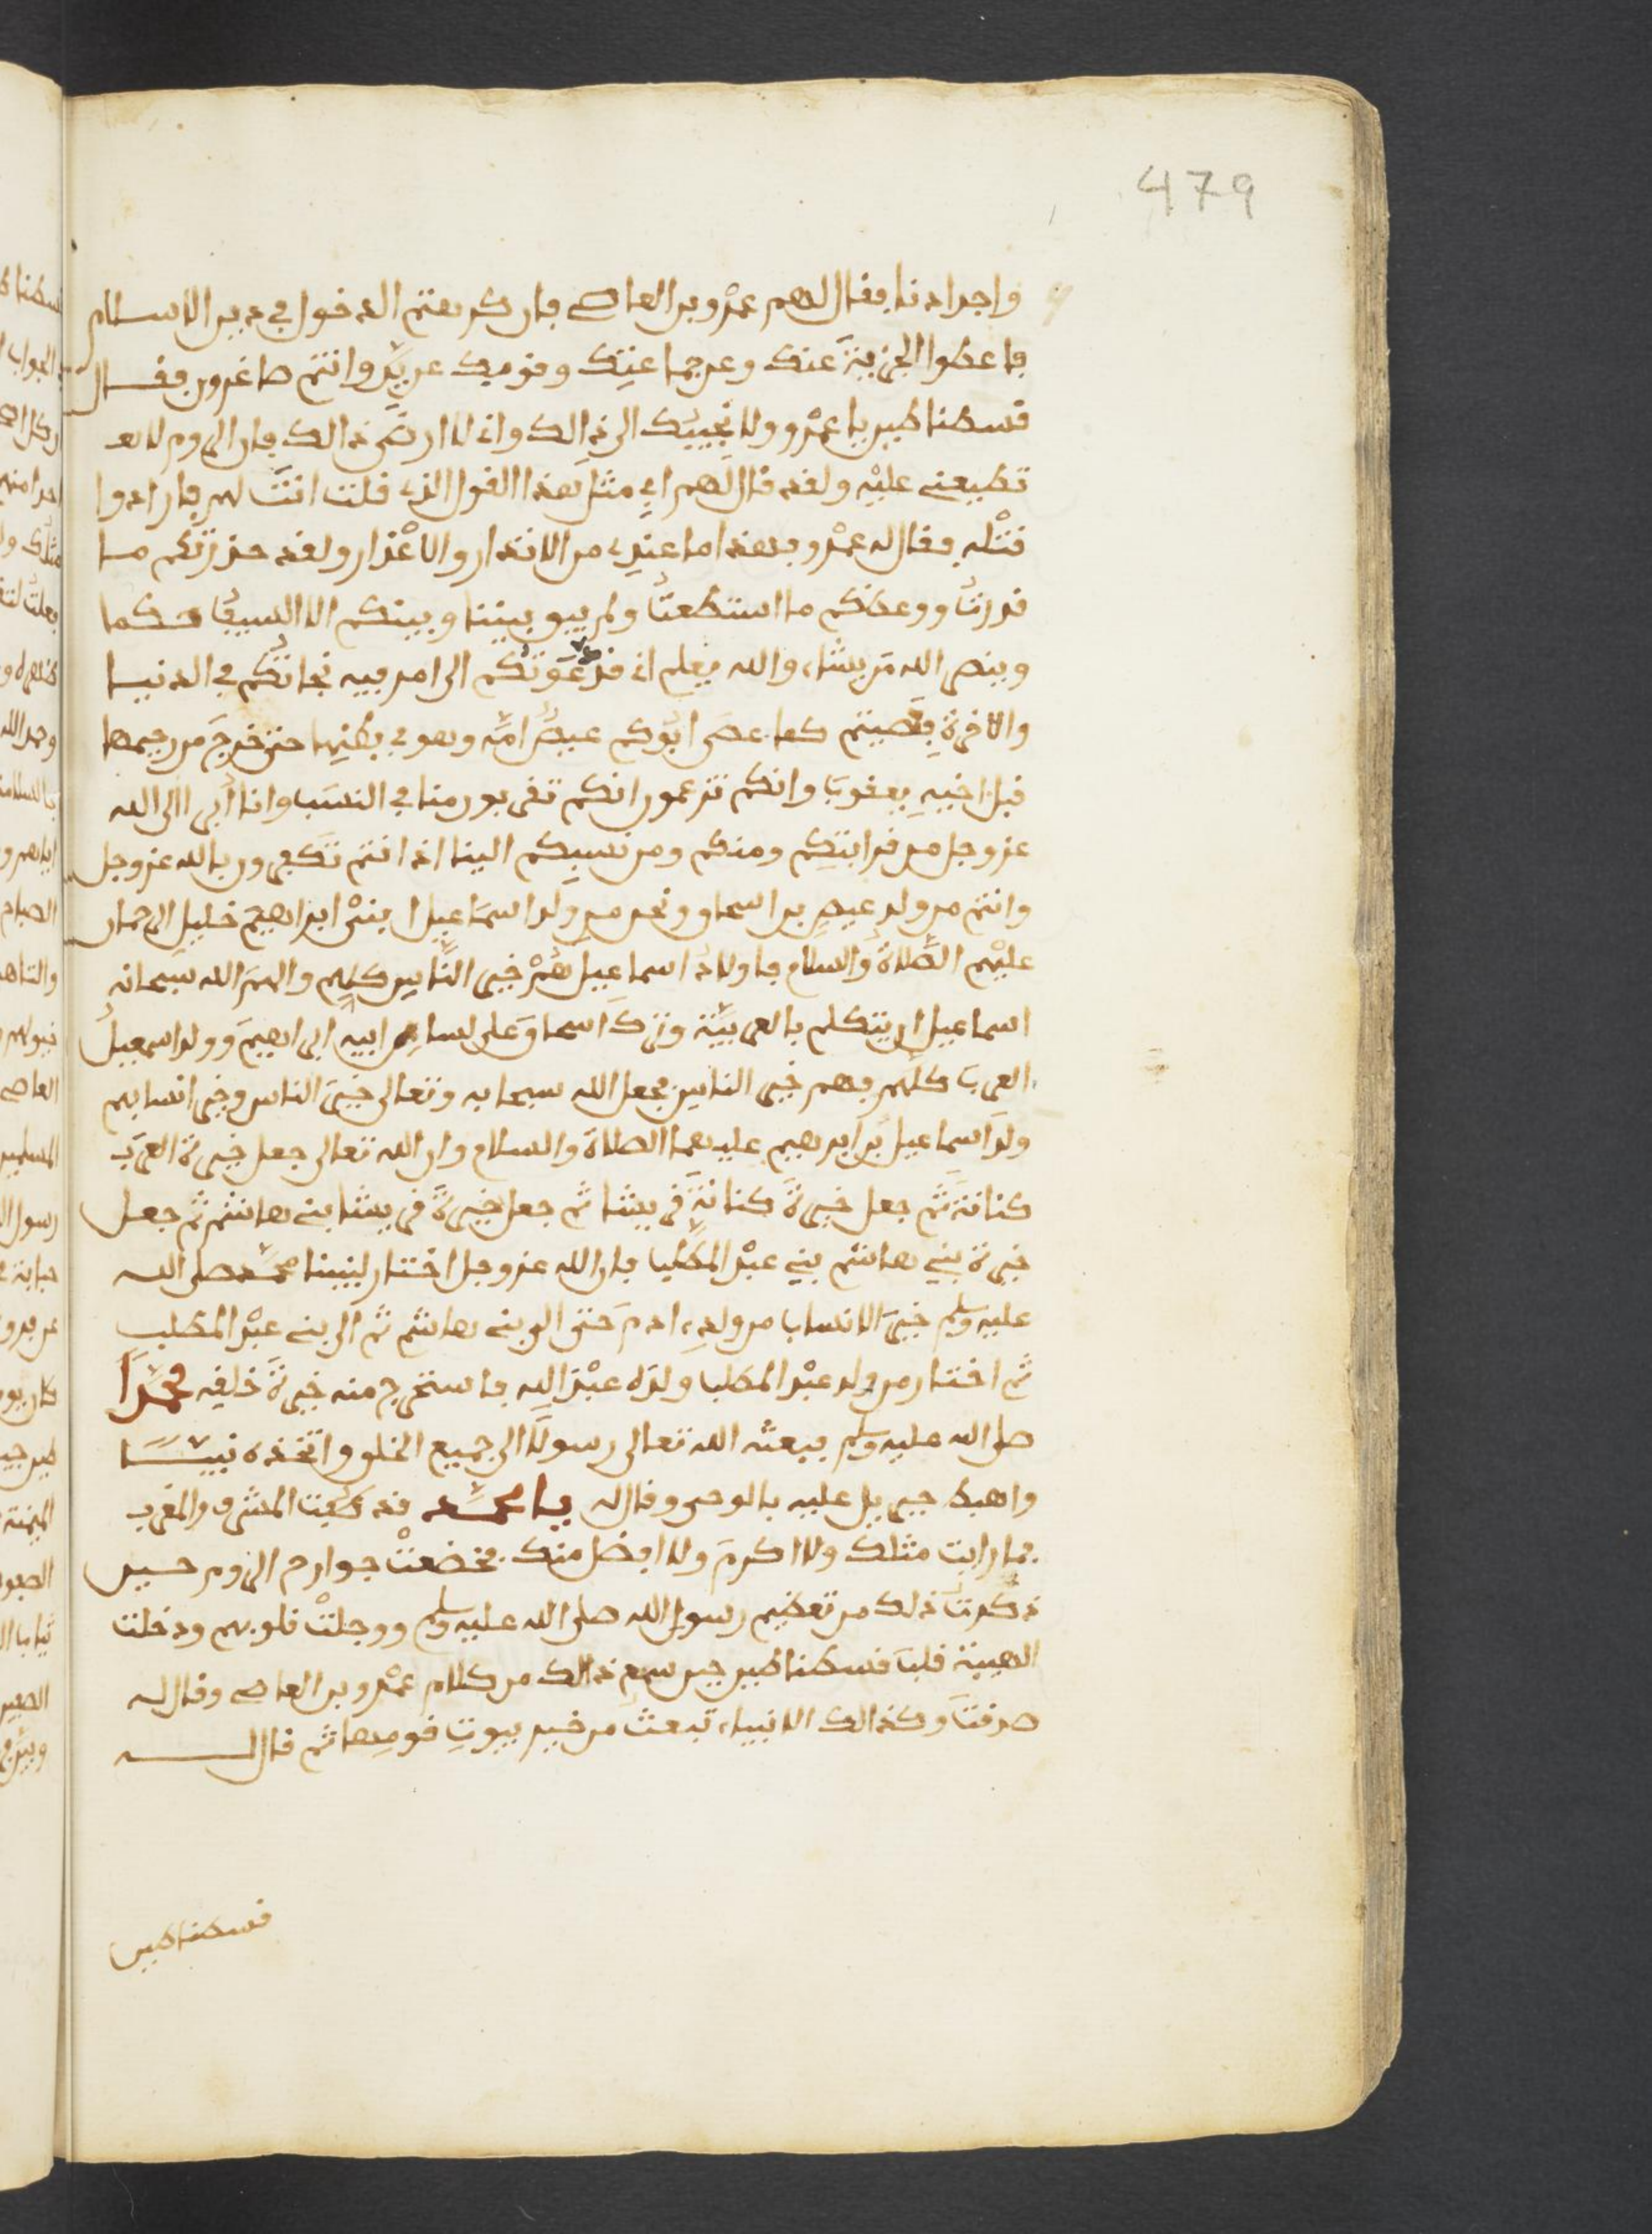 479
واجدادنا فقال لهم عمرو بن العاص فان كرهتم الدخول في دين الاسلام
فاعطوا الجزية عنك وعن جماعتك وقومك عن يد وانتم صاغرون فقال
قسطناطين يا عمرو ولا نجيبك الى ذالك وان لا ارضى ذالك فان الروم لا
تطيعني عليه ولقد قال لهم ابي مثل هذا القول الذي قلت انت لهم فارادوا
قتله فقال له عمرو فهذا ما عندي من الانذار والاعذار ولقد حذرتكم ما
قدرت ووعظتكم ما استطعت ولم يبق بيننا وبينكم الا السيف حكما
وينصر الله من يشاء والله يعلم اني قد دعوتكم الى امر فيه نجاتكم في الدنيا
والاخرة فعصيتم كما عصى ابوكم عيص امه وهو في بطنها حتى خرج من رحمها
قبل اخيه يعقوب وانكم تزعمون انكم تقربون منا في النسب وانا ابرا الى الله
عز وجل من قرابتكم ومنكم ومن نسبكم الينا اذ انتم تكفرون بالله عز وجل
وانتم من ولد عيص بن اسحاق ونحن من ولد اسماعيل ابني ابراهيم خليل الرحمان
عليهم الصلاة والسلام فاولاد اسماعيل هم خير الناس كلهم والهم الله سبحانه
اسماعيل ان يتكلم بالعربية وترك اسحاق على لسان ابيه ابراهيم وولد اسمعيل
العرب كلهم فهم خير الناس فجعل الله سبحانه وتعالى خير الناس وخير انسابهم
ولد اسماعيل بن ابرهيم عليهما الصلاة والسلام وان الله تعالى جعل خيرة العرب
كنانة ثم جعل خيرة كنانة قريشا ثم جعل خيرة قريشا بني هاشم ثم جعل
خيرة بني هاشم بني عبد المطلب فان الله عز وجل اختار لنبينا محمد صلى الله
عليه وسلم خير الانساب من ولد ادم حتى الى بني هاشم ثم الى بني عبد المطلب
ثم اختار من ولد عبد المطلب ولده عبد الله فاستخرج منه خيرة خلقه محمدا
صلى الله عليه وسلم فبعثه الله تعالى رسولا الى جميع الخلق واتخذه نبيا
واهبط جبريل عليه بالوحي وقال له يا محمد قد طفت المشرق والمغرب
فما رايت مثلك ولا اكرم ولا افضل منك فخضعت جوارح الروم حين
ذكرت ذلك من تعظيم رسول الله صلى الله عليه وسلم ووجلت قلوبهم ودخلت
الهيبة قلب قسطناطين حين سمع ذالك من كلام عمرو بن العاص وقال له
صدقت وكذالك الانبياء تبعث من خير بيوت قومها ثم قال له
قسطناطين